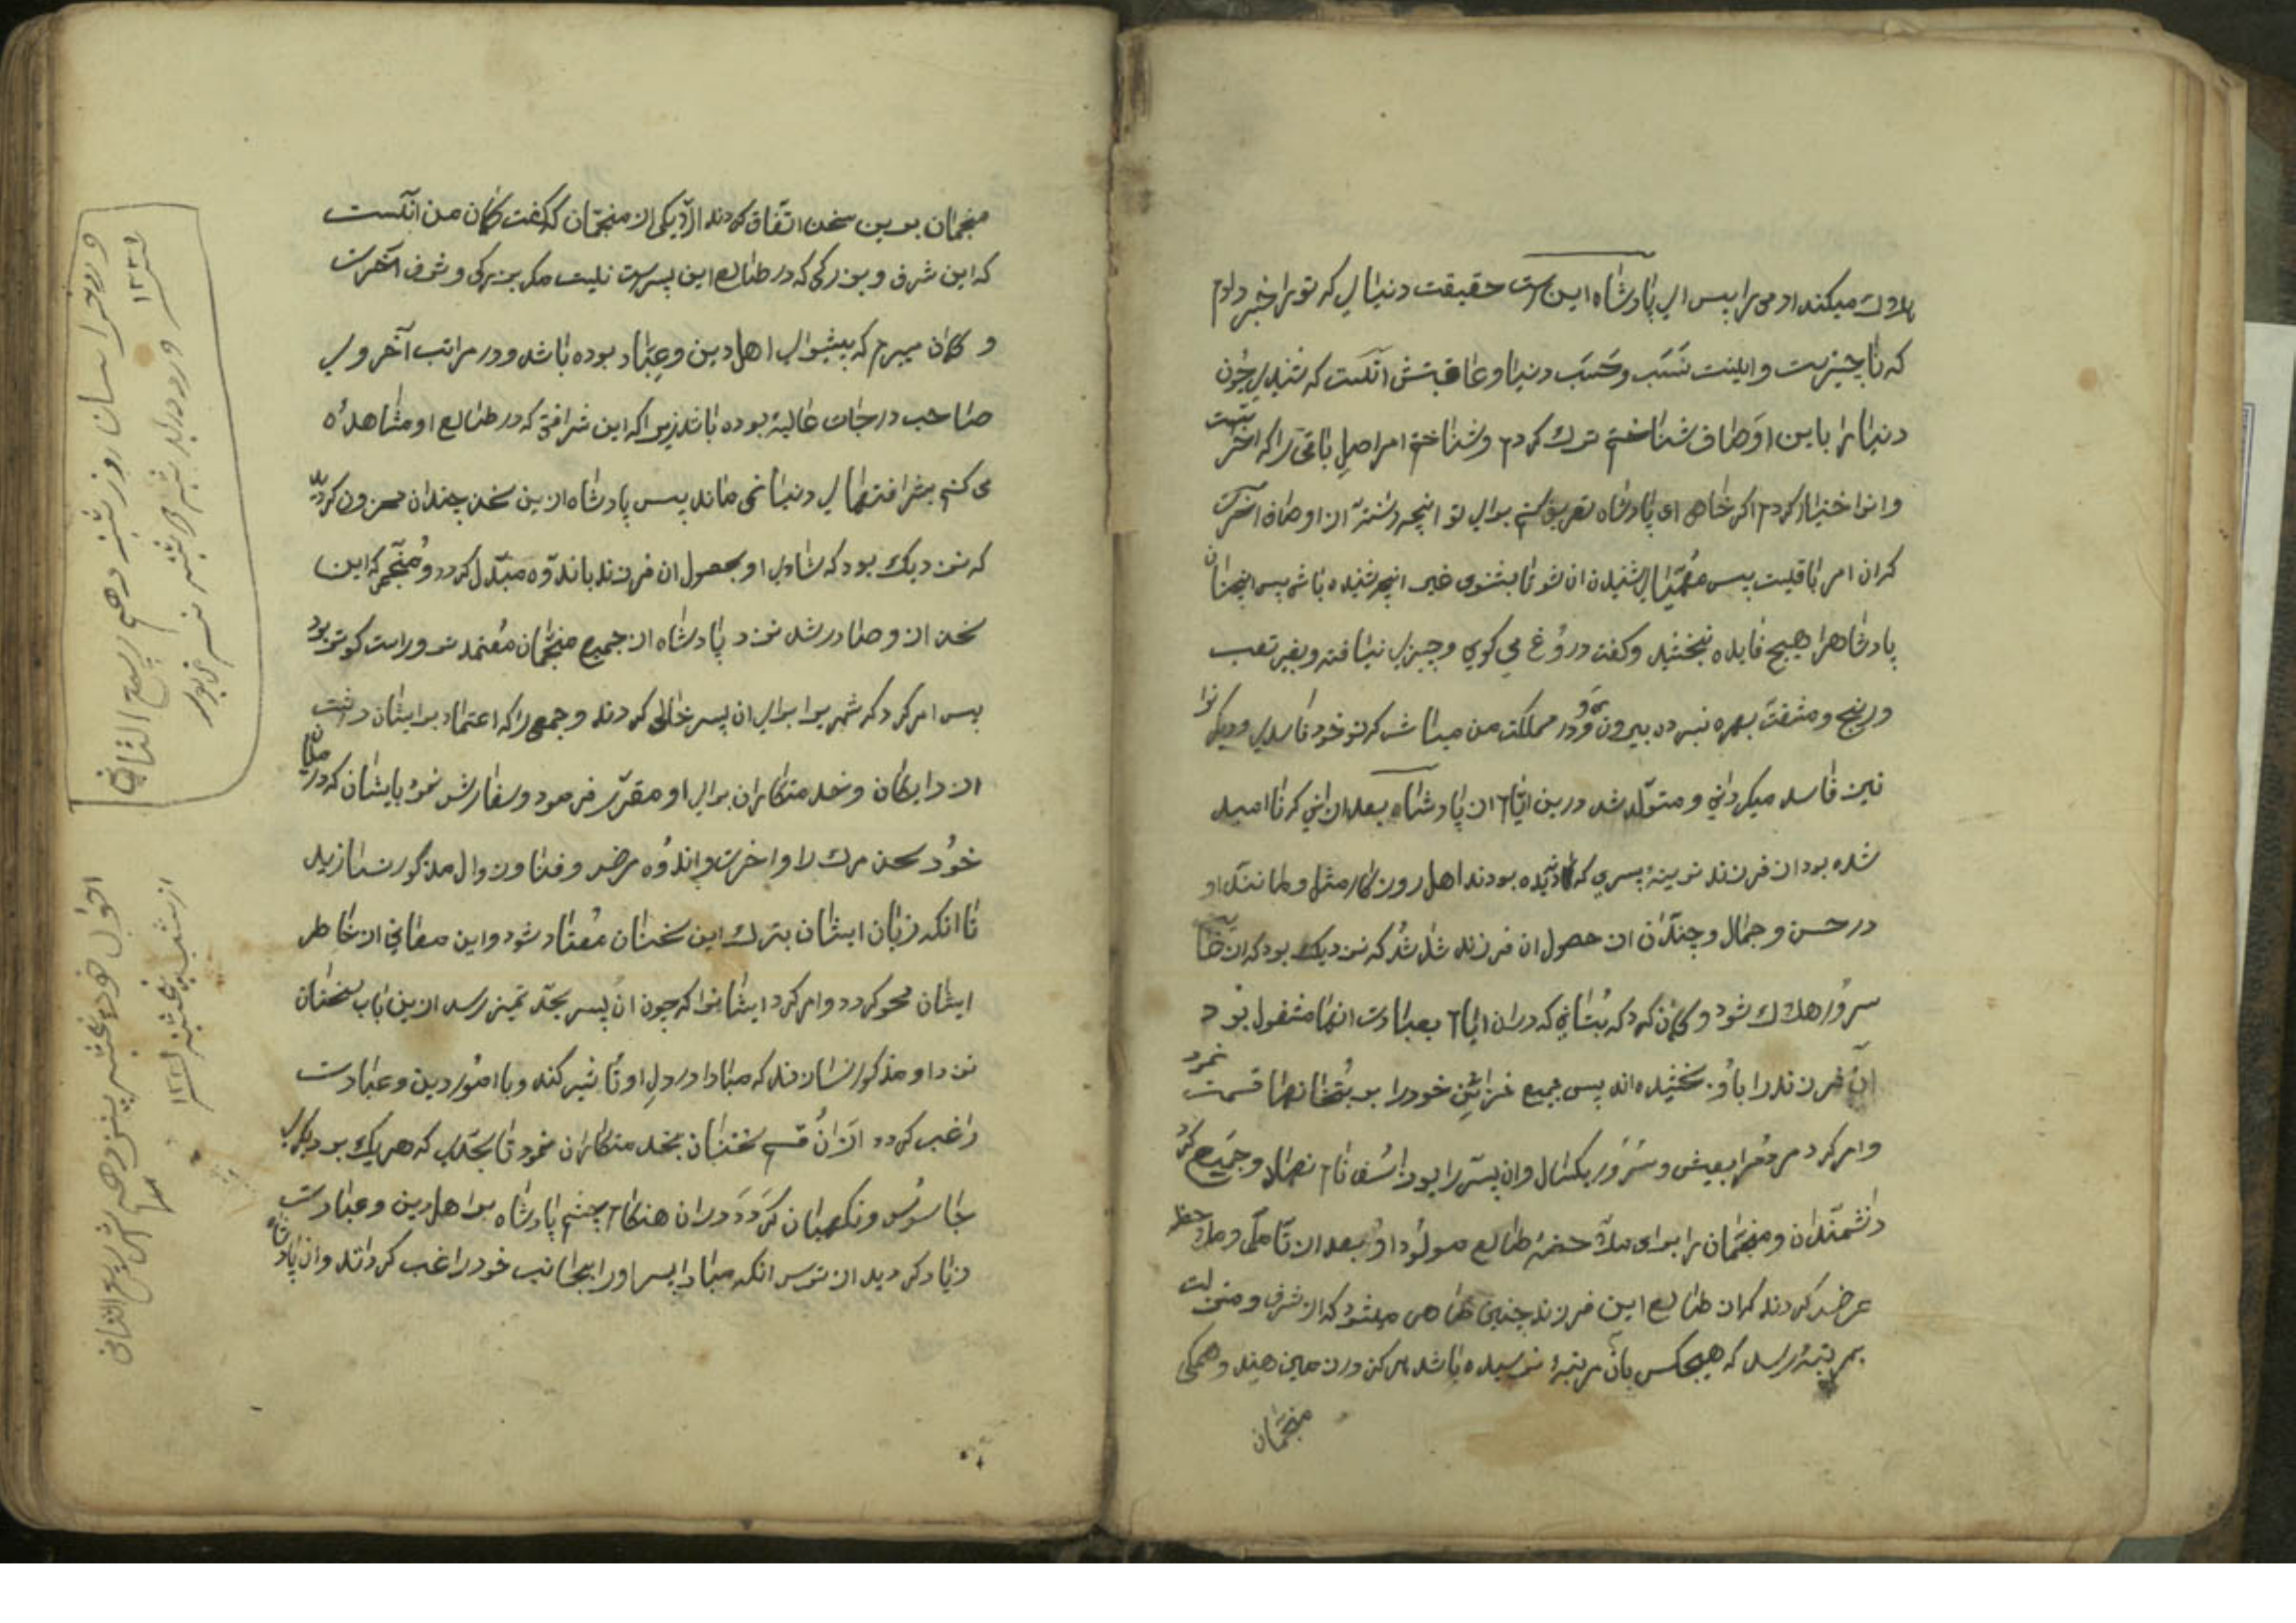 هلاك میکند ادمی را پس ای پادشاه این است حقیقت دنیای که ترا خبر دادم
که ناچیزیست و اینست نسب و حسب دنیا و عاقبتش انست که شنیدی چون
دنیا را باین اوصاف شناختم ترك کردم و شناختم امر اصل باقی را که اخرتست
وانرا اختیار کردم اگر خاهی ای پادشاه تعریف کنم برای تو انچه دانسته ان اوصاف اخرت
کران امر باقیست پس مهیای شنیدن ان شو تا بشنوی غیر انچه شنیده باشی پس این سخنان
پادشاهرا هیچ فایده نبخشید و کفت دروغ می کوی و چیزی نیافته و بغیر تعب
و رنج و مشقت بهره نبرده بیرون رو و در مملکت من مباش که تو خود فاسدی و دیکرانرا
نیز فاسد میکردانی و متولد شد درین ایام ان پادشاه بعد از انی که نا امید
شده بود از فرزند نرینه پسری که ندیده بودند اهل روزکار مثل و مانند او
در حسن و جمال و چندان از حصول ان فرزند شاد شد که نزدیك بود که از غایت
سرور هلاك شود و کمان کرد که بتانی که دران ایام بعبادت انها مشغول بود
ان فرزند را باو بخشیده اند پس جمیع خزاین خود را بر بتخانها قسمت نمود
وامر کرد مردم را بعیش و سرور یکسال وان پسر را یوذاسف نام نهاد و جمع کرد
دانشمندان و منجمان را برای ملاحظه طالع مولود او و بعد از تامل و ملاحظه
عرض کردند که از طالع این فرزند چنین ظاهر میشود که از شرف و منزلت
بمرتبه رسد که هیچکس بان مرتبه نرسیده باشد هرکز در زمین هند و همکی
منجمان
منجمان برین سخن اتفاق کردند الا یکی از منجمان که کفت کمان من انست
که این شرف و بزرکی که در طالع این پسرست نیست مکر بزرکی و شرف اخرت
و کمان میبرم که پیشوای اهل دین و عباد بوده باشد و در مراتب آخروی
صاحب درجات عالیه بوده باشد زیرا که این شرافتی که در طالع او مشاهده
می کنم بشرافتهای دنیا نمی ماند پس پادشاه ازین سخن چندان محزون کردید
که نزدیك بود که شادی او بحصول ان فرزند باندوه مبدل کردد و منجمی که این
سخن از و صادر شد نزد پادشاه از جمیع منجمان معتمدتر و راست کوتر بود
پس امر کرد که شهر یرا برای ان پسر خالی کردند و جمعی را که اعتماد بر ایشان داشت
از دایکان و خدمتکاران برای او مقرر فرمود و سفارش نمود بایشان که در میان
خود سخن مرك و اخرت و اندوه مرض و فنا و زوال مذکور نسازید
تا انکه زبان ایشان بترك این سخنان معتاد شود و این معانی از خاطر
ایشان محو کردد و امر کرد ایشانرا که چون ان پسر بحد تمیز رسد ازین باب سخنان
نزد او مذکور نسازند که مبادا در دل او تاثیر کند و با امور دین و عبادت
راغب کردد از ان قسم سخنان بخدمتکاران نمود تا بحدی که هر یك بر دیکری
جاسوس و نکهبان کردد و دران هنکام خشم پادشاه بر اهل دین و عبادت
زیاد کردید از ترس انکه مبادا پسر او را بجانب خود راغب کردانند وان پادشاه
روز شنبه دهم ربیع الثانی
۱۲۳۱
پنجشنبه پانزدهم شهر ربیع الثانی